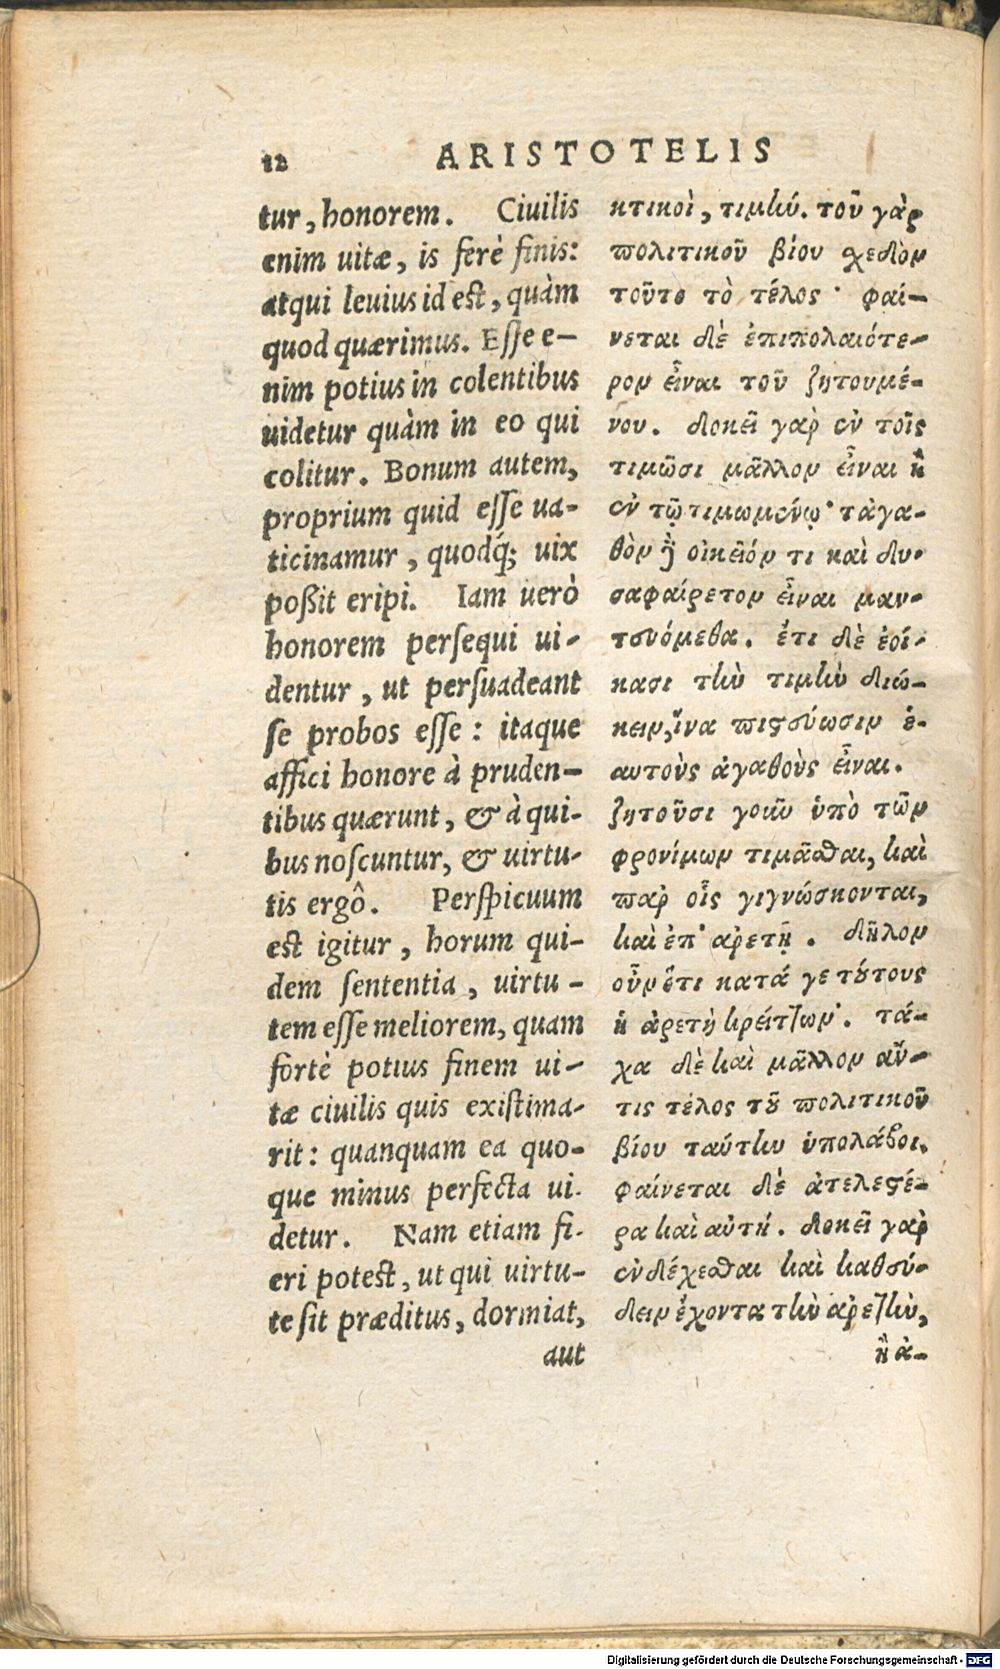 12 ARISTOTELIS
tur, honorem. Ciuilis
enim uitæ, is ferè finis:
atqui leuius id est, quàm
quod quærimus. Esse e-
nim potius in colentibus
uidetur quàm in eo qui
colitur. Bonum autem,
proprium quid esse ua-
ticinamur, quodq́; uix
poßit eripi. Iam uerò
honorem persequi ui-
dentur, ut persuadeant
se probos esse: itaque
affici honore à pruden-
tibus quærunt, & à qui-
bus noscuntur, & uirtu-
tis ergô. Perspicuum
est igitur, horum qui-
dem sententia, uirtu-
tem esse meliorem, quam
fortè potius finem ui-
tæ ciuilis quis existima-
rit: quanquam ea quo-
que minus perfecta ui-
detur. Nam etiam fi-
eri potest, ut qui uirtu-
te sit præditus, dormiat,
aut
κτικοὶ, τιμήν. τοῦ γὰρ
πολιτικοῦ βίου σχεδὸν
τοῦτο τὸ τέλος· φαί-
νεται δὲ ἐπιπολαιότε-
ρον εἶναι τοῦ ζητουμέ-
νου. δοκεῖ γὰρ ἐν τοῖς
τιμῶσι μᾶλλον εἶναι ἢ
ἐν τῷ τιμωμένῳ· τἀγα-
θὸν δὲ οἰκεῖόν τι καὶ δυ-
σαφαίρετον εἶναι μαν-
τευόμεθα. ἔτι δὲ ἐοί-
κασι τὴν τιμὴν διώ-
κειν, ἵνα πιστεύωσιν ἑ-
αυτοὺς ἀγαθοὺς εἶναι.
ζητοῦσι γοῦν ὑπὸ τῶν
φρονίμων τιμᾶσθαι, καὶ
παρ οἷς γιγνώσκονται,
καὶ ἐπ' ἀρετῇ. δῆλον
οὖν ὅτι κατά γε τούτους
ἡ ἀρετὴ κρείττων. τά-
χα δὲ καὶ μᾶλλον ἄν-
τις τέλος τοῦ πολιτικοῦ
βίου ταύτην ὑπολάβοι.
φαίνεται δὲ ἀτελεστέ-
ρα καὶ αὐτή. δοκεῖ γὰρ
ἐνδέχεσθαι καὶ καθεύ-
δειν ἔχοντα τὴν ἀρετὴν,
ἢ ἀ-
Digitalisierung gefördert durch die Deutsche Forschungsgemeinschaft - DFG